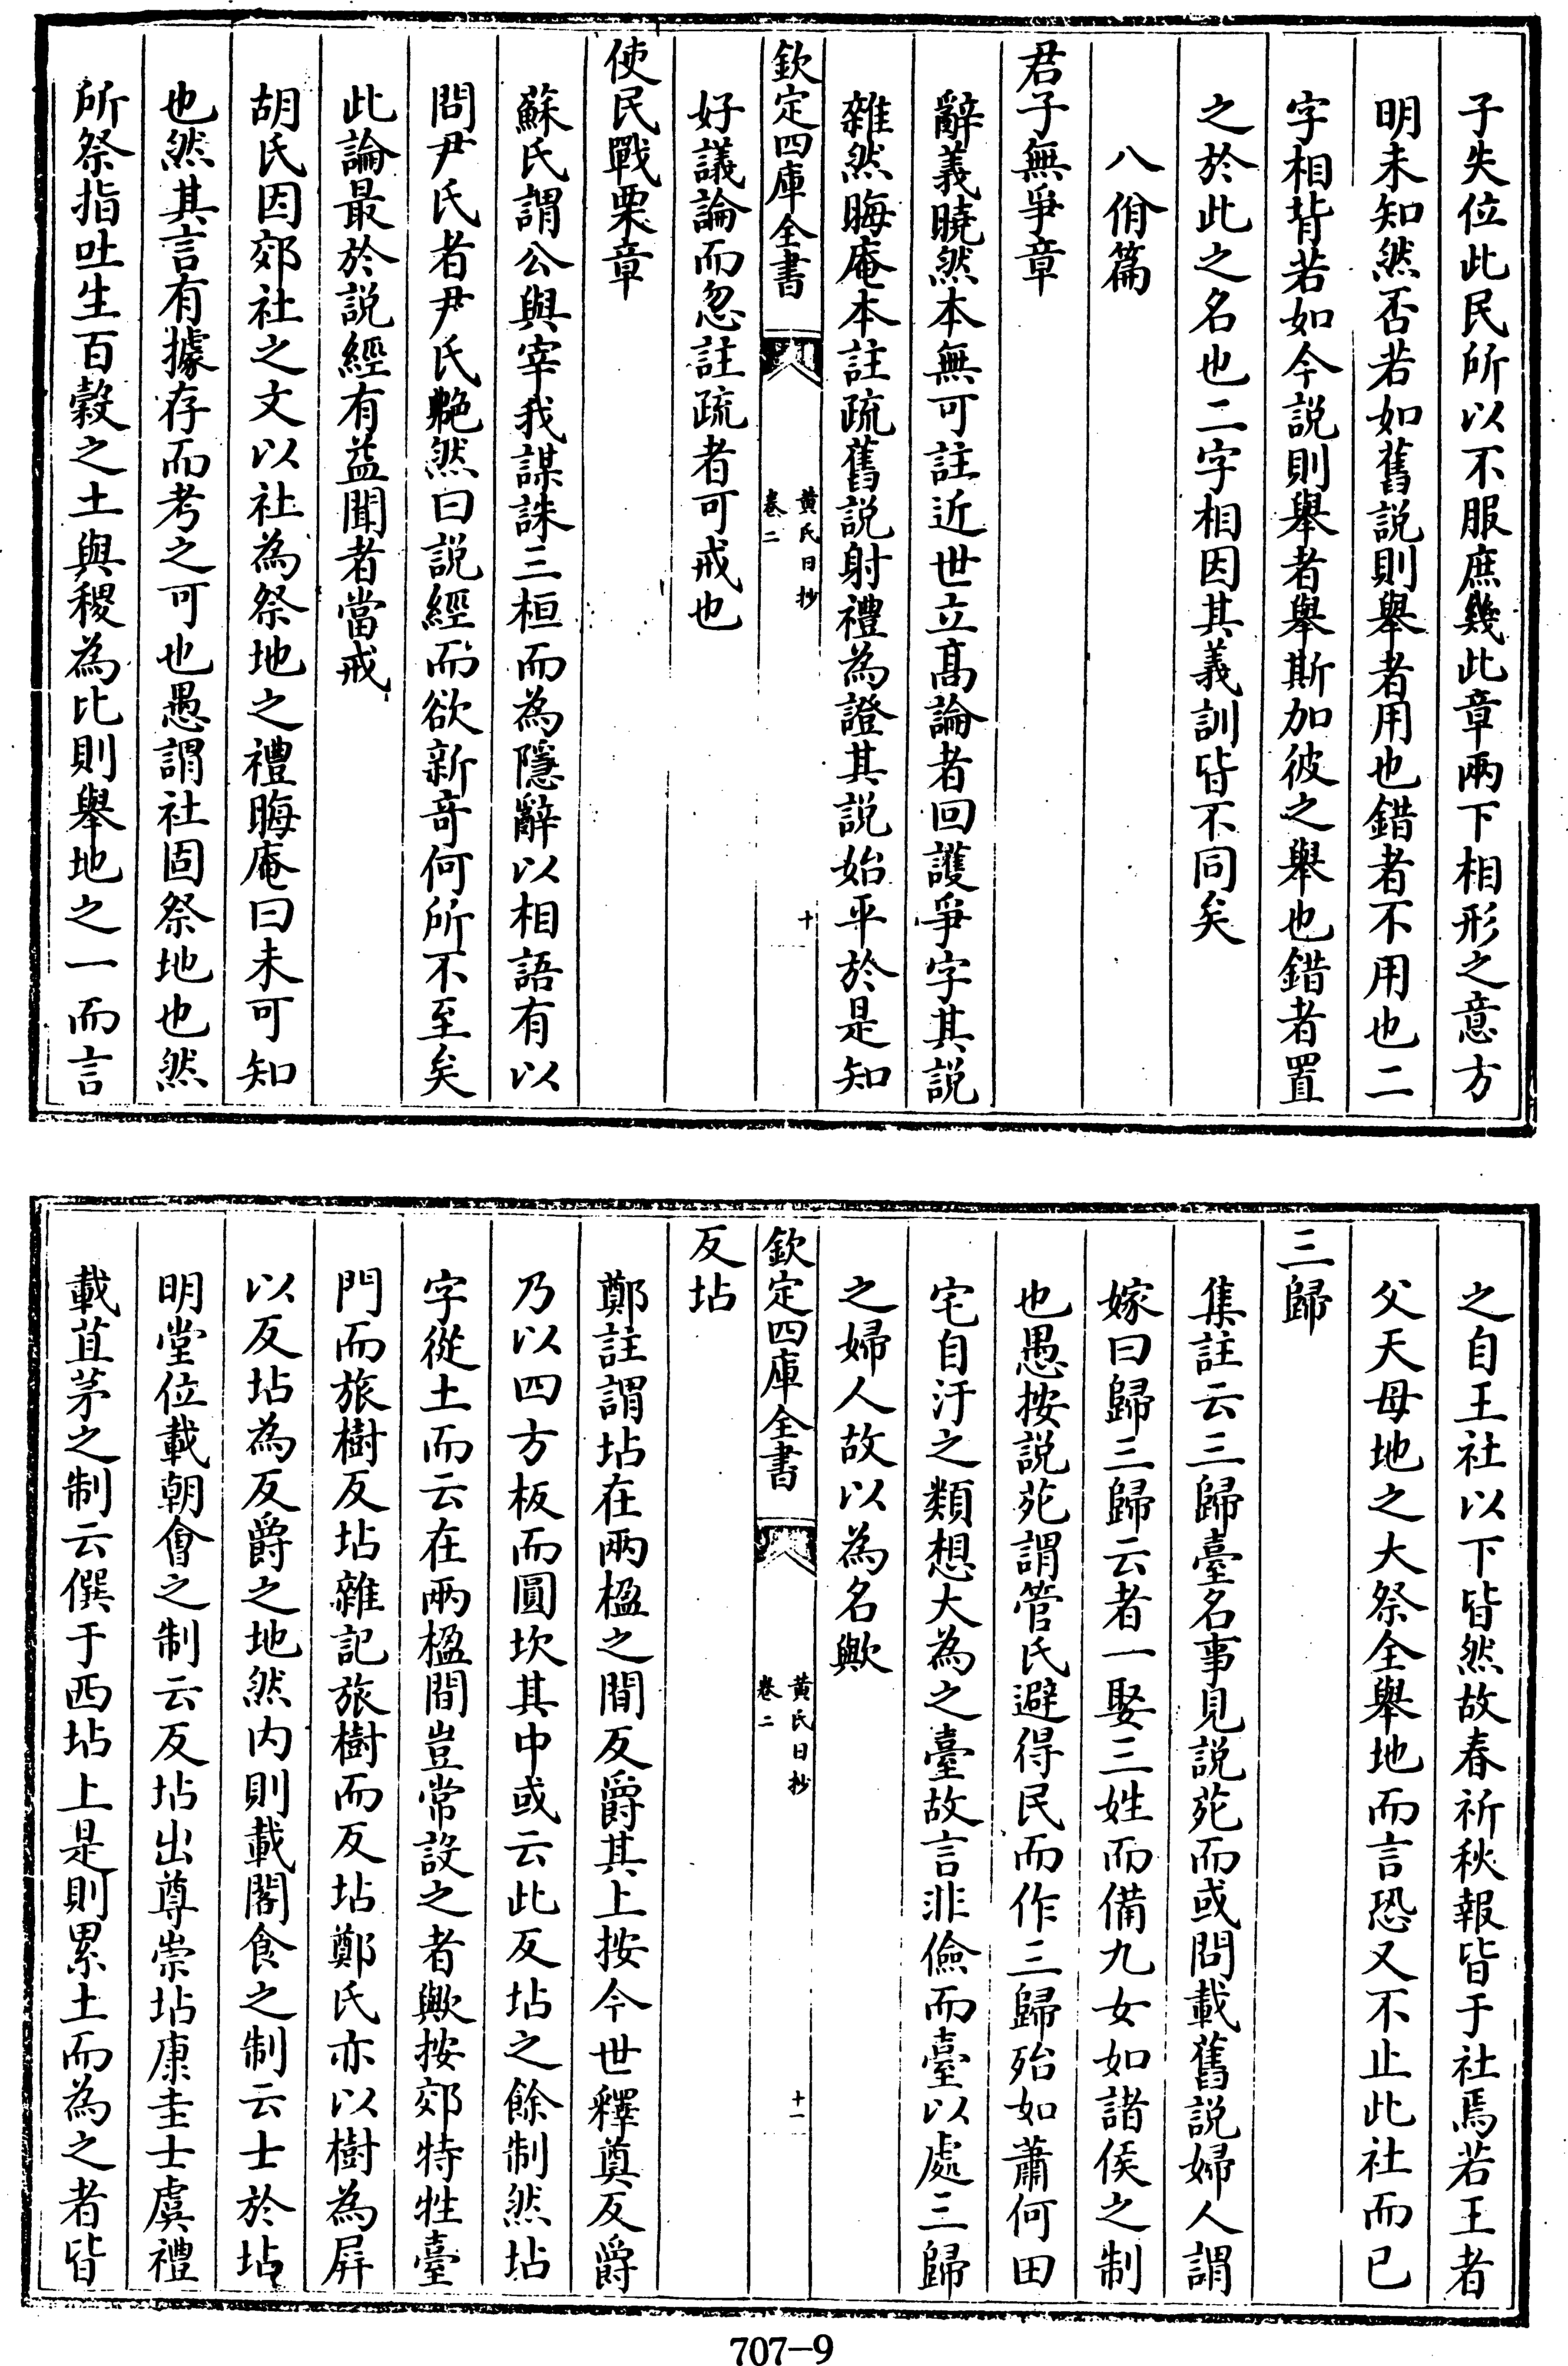 子失位此民所以不服庶幾此章兩下相形之意方
明未知然否若如舊説則舉者用也錯者不用也二
字相背若如今説則舉者舉斯加彼之舉也錯者置
之於此之名也二字相因其義訓皆不同矣
八佾篇
君子無爭章
辭義曉然本無可註近世立髙論者回護爭字其説
雜然晦庵本註疏舊説射禮為證其説始平於是知
欽定四庫全書
黄氏日抄
卷二
十
好議論而忽註疏者可戒也
使民戰栗章
蘇氏謂公與宰我謀誅三桓而為隱辭以相語有以
問尹氏者尹氏艴然曰説經而欲新竒何所不至矣
此論最於説經有益聞者當戒
胡氏因郊社之文以社為祭地之禮晦庵曰未可知
也然其言有據存而考之可也愚謂社固祭地也然
所祭指吐生百穀之土與稷為比則舉地之一而言
之自王社以下皆然故春祈秋報皆于社焉若王者
父天母地之大祭全舉地而言恐又不止此社而已
三歸
集註云三歸臺名事見説苑而或問載舊説婦人謂
嫁曰歸三歸云者一娶三姓而備九女如諸侯之制
也愚按説苑謂管氏避得民而作三歸殆如蕭何田
宅自汙之類想大為之臺故言非儉而臺以處三歸
之婦人故以為名歟
欽定四庫全書
黄氏日抄
卷二
十一
反坫
鄭註謂坫在兩楹之間反爵其上按今世釋奠反爵
乃以四方板而圓坎其中或云此反坫之餘制然坫
字從土而云在兩楹間豈常設之者歟按郊特牲臺
門而旅樹反坫雜記旅樹而反坫鄭氏亦以樹為屏
以反坫為反爵之地然内則載閣食之制云士於坫
明堂位載朝會之制云反坫出尊崇坫康圭士虞禮
載苴茅之制云僎于西坫上是則累土而為之者皆
707-9